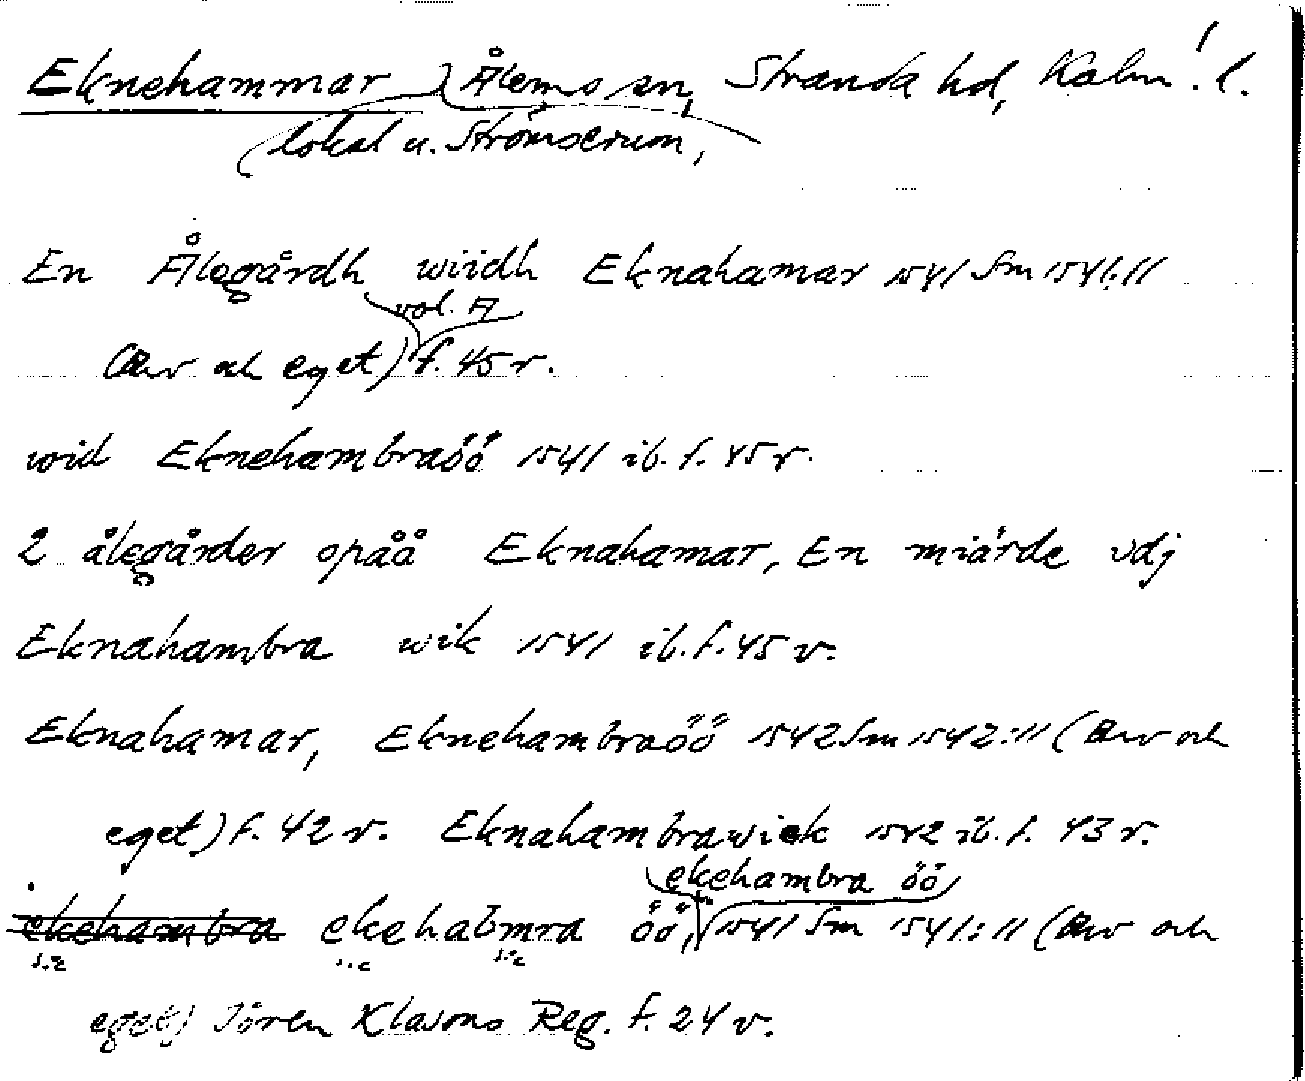 Eknehammar Ålems sn, Stranda hd, Kalm. l.
lokal u. Strömserum,
En Ålegårdh wiidh Eknahamar 1541 Sm 1541:11
vol. A
(Arv och eget) f. 45 r.
wid Eknehambraöö 1541 ib. f. 45 r.
2 ålegårder opåå Eknahamar, En miärde vdj
Eknahambra wik 1541 ib. f. 45 v.
Eknahamar, Eknehambraöö 1542 Sm 1542:11 (Arv och
eget) f. 42 v. Eknahambrawiek 1542 ib. f. 43 r.
ekehambra öö
ekehambra ekehabmra öö, 1541 Sm 1541:11 (Arv och
eget) Jören Klasons Reg. f. 24 v.